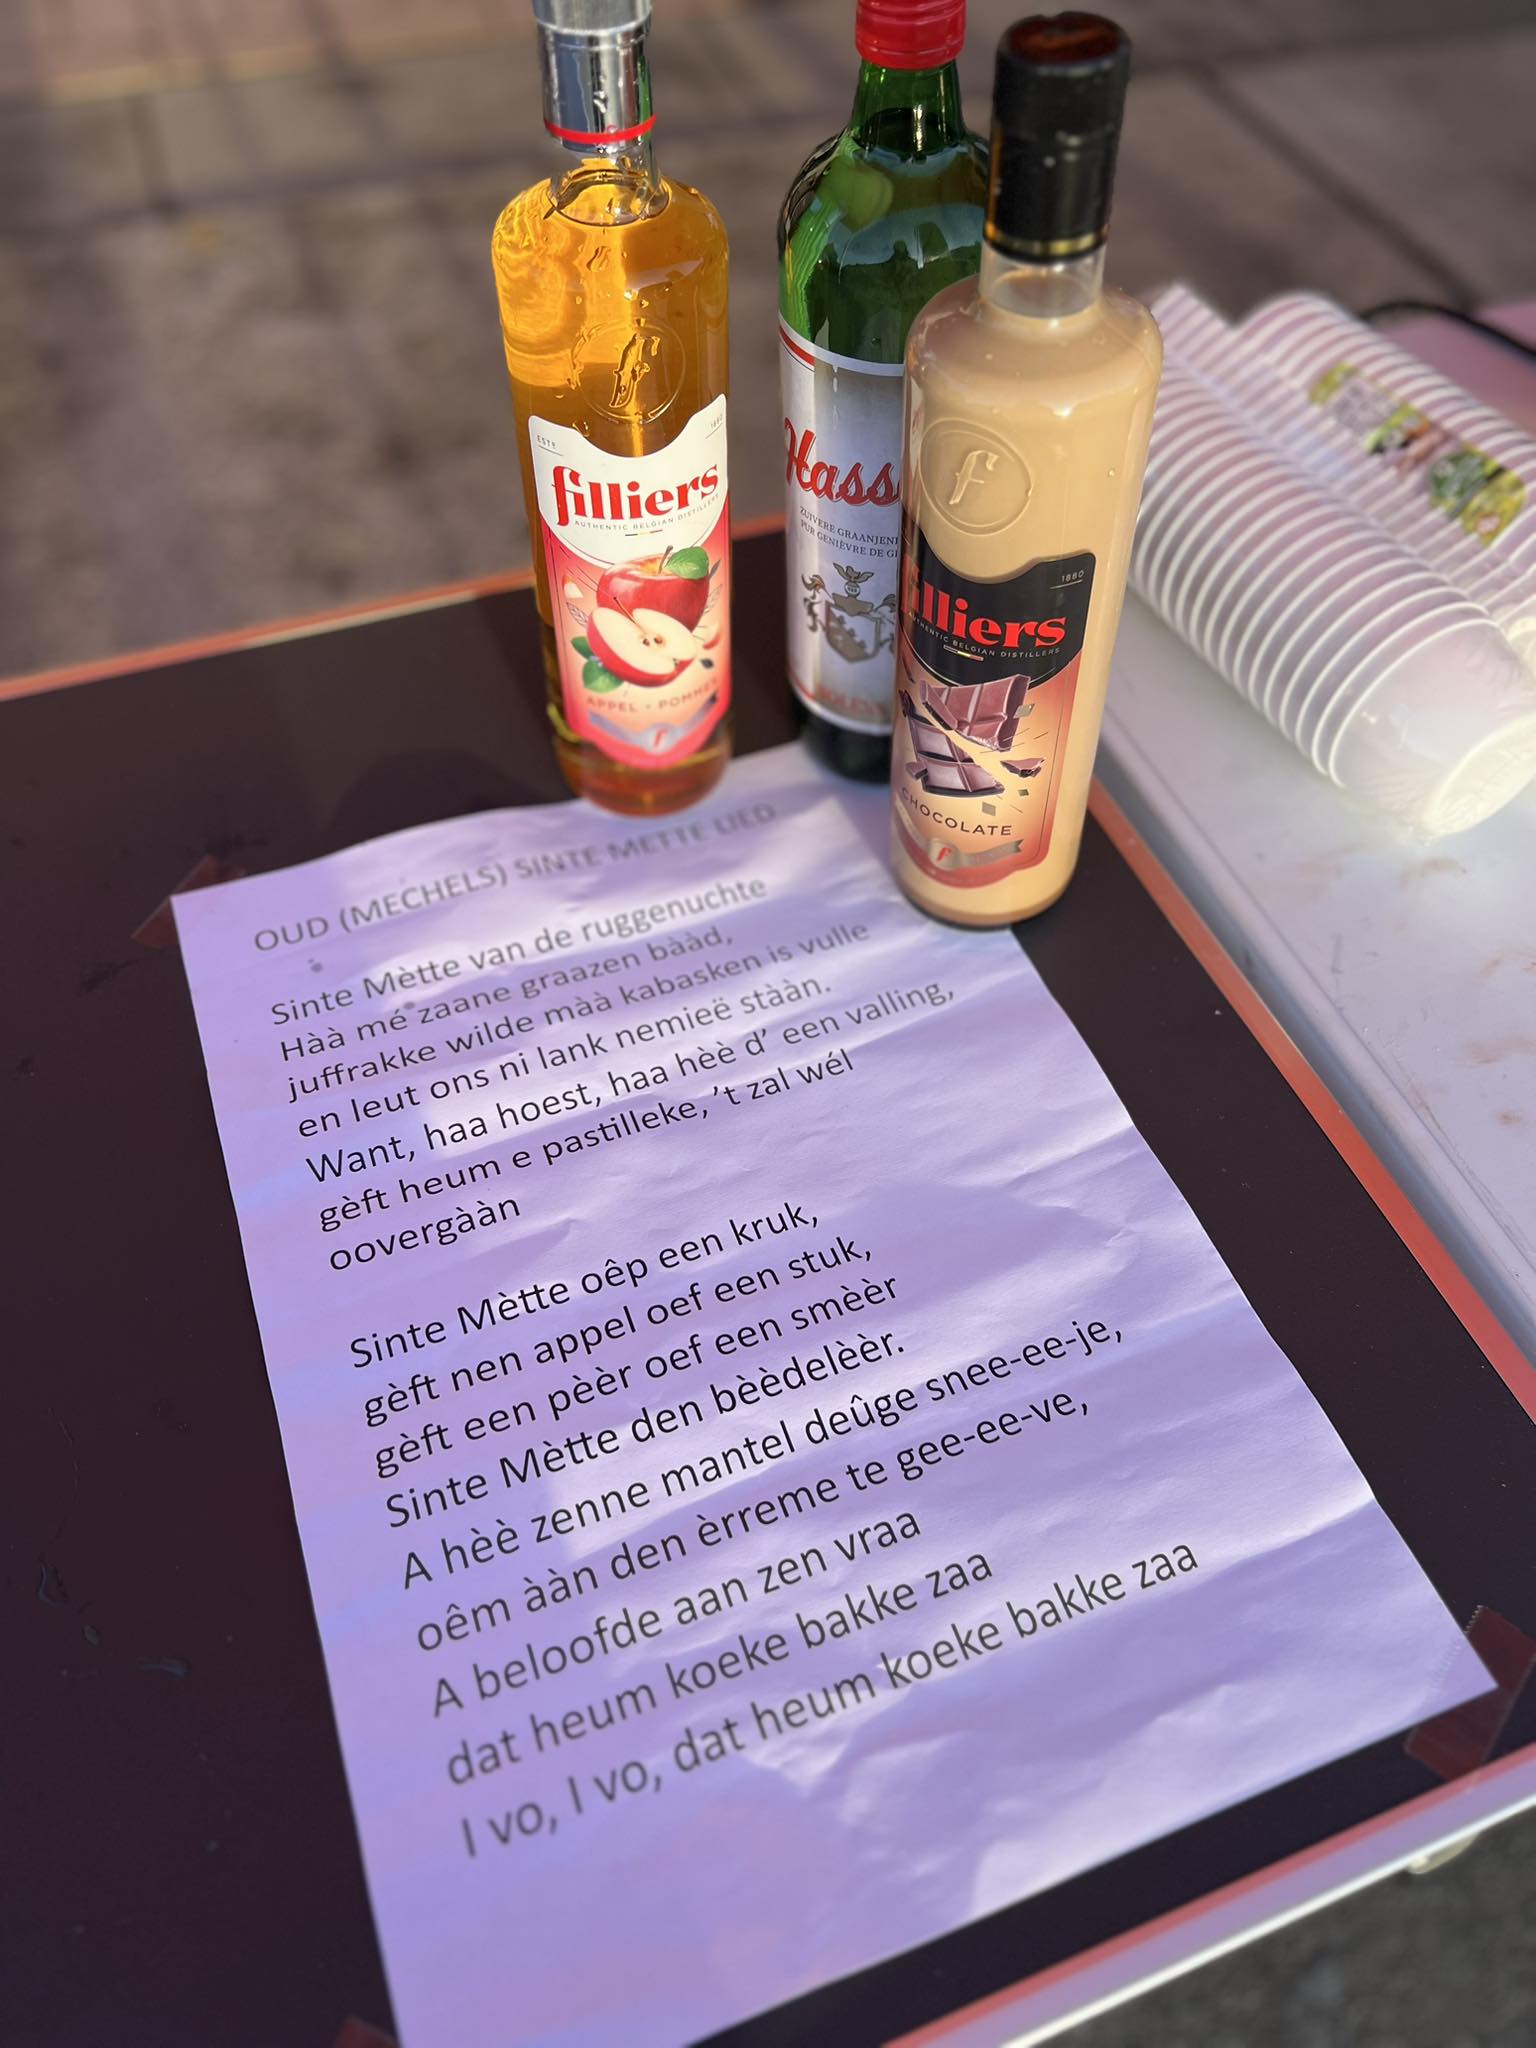 ESTD
1880
filliers
AUTHENTIC BELGIAN DISTILLERS
APPEL • POMME
f
Hass
ZUIVERE GRAANJEN
PUR GENIÈVRE DE G
f
1880
filliers
AUTHENTIC BELGIAN DISTILLERS
CHOCOLATE
f
OUD (MECHELS) SINTE METTE LIED
Sinte Mètte van de ruggenuchte
Hàà mé zaane graazen bààd,
juffrakke wilde màà kabasken is vulle
en leut ons ni lank nemieë stààn.
Want, haa hoest, haa hèè d’ een valling,
gèft heum e pastilleke, ’t zal wél
oovergààn
Sinte Mètte oêp een kruk,
gèft nen appel oef een stuk,
gèft een pèèr oef een smèèr
Sinte Mètte den bèèdelèèr.
A hèè zenne mantel deûge snee-ee-je,
oêm ààn den èrreme te gee-ee-ve,
A beloofde aan zen vraa
dat heum koeke bakke zaa
I vo, I vo, dat heum koeke bakke zaa